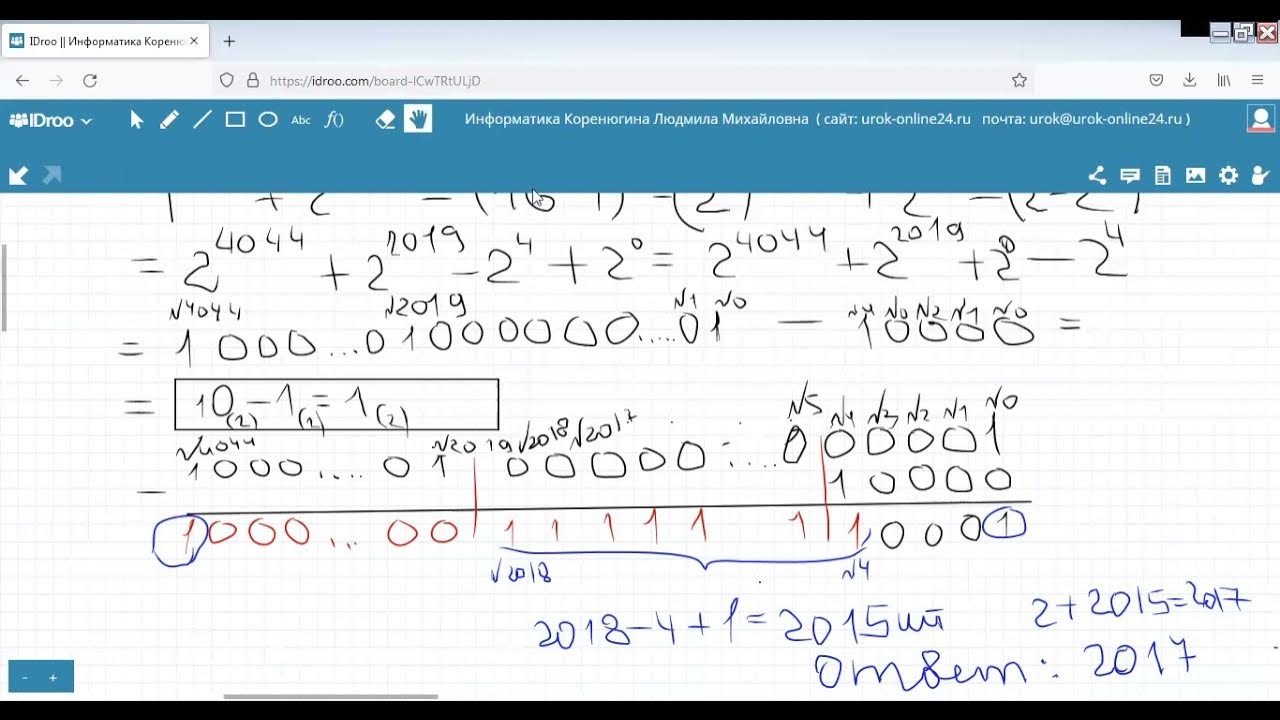 IDroo || Информатика Коренюг
https://idroo.com/board-lCwTRtULjD
IDroo Abc f() Информатика Коренюгина Людмила Михайловна ( сайт: urok-online24.ru почта: urok@urok-online24.ru )
= 2^4044 + 2^2019 - 2^4 + 2^0 = 2^4044 + 2^2019 + 2^0 - 2^4
№4044 №2019 №1 №0 №4 №0 №2 №1 №0
= 1 0 0 0 ... 0 1 0 0 0 0 0 0 .... 0 1 - 1 0 0 0 0 =
= 10(2) - 1(2) = 1(2)
№4044 №2019 №2018 №2017 №5 №4 №3 №2 №1 №0
- 1 0 0 0 .... 0 1 0 0 0 0 0 ...... 0 0 0 0 0 1
1 0 0 0 0
1 0 0 0 ... 0 0 1 1 1 1 1 1 1 0 0 0 1
№2018 №4
2018-4+1=2015шт 2+2015=2017
Ответ: 2017
- +